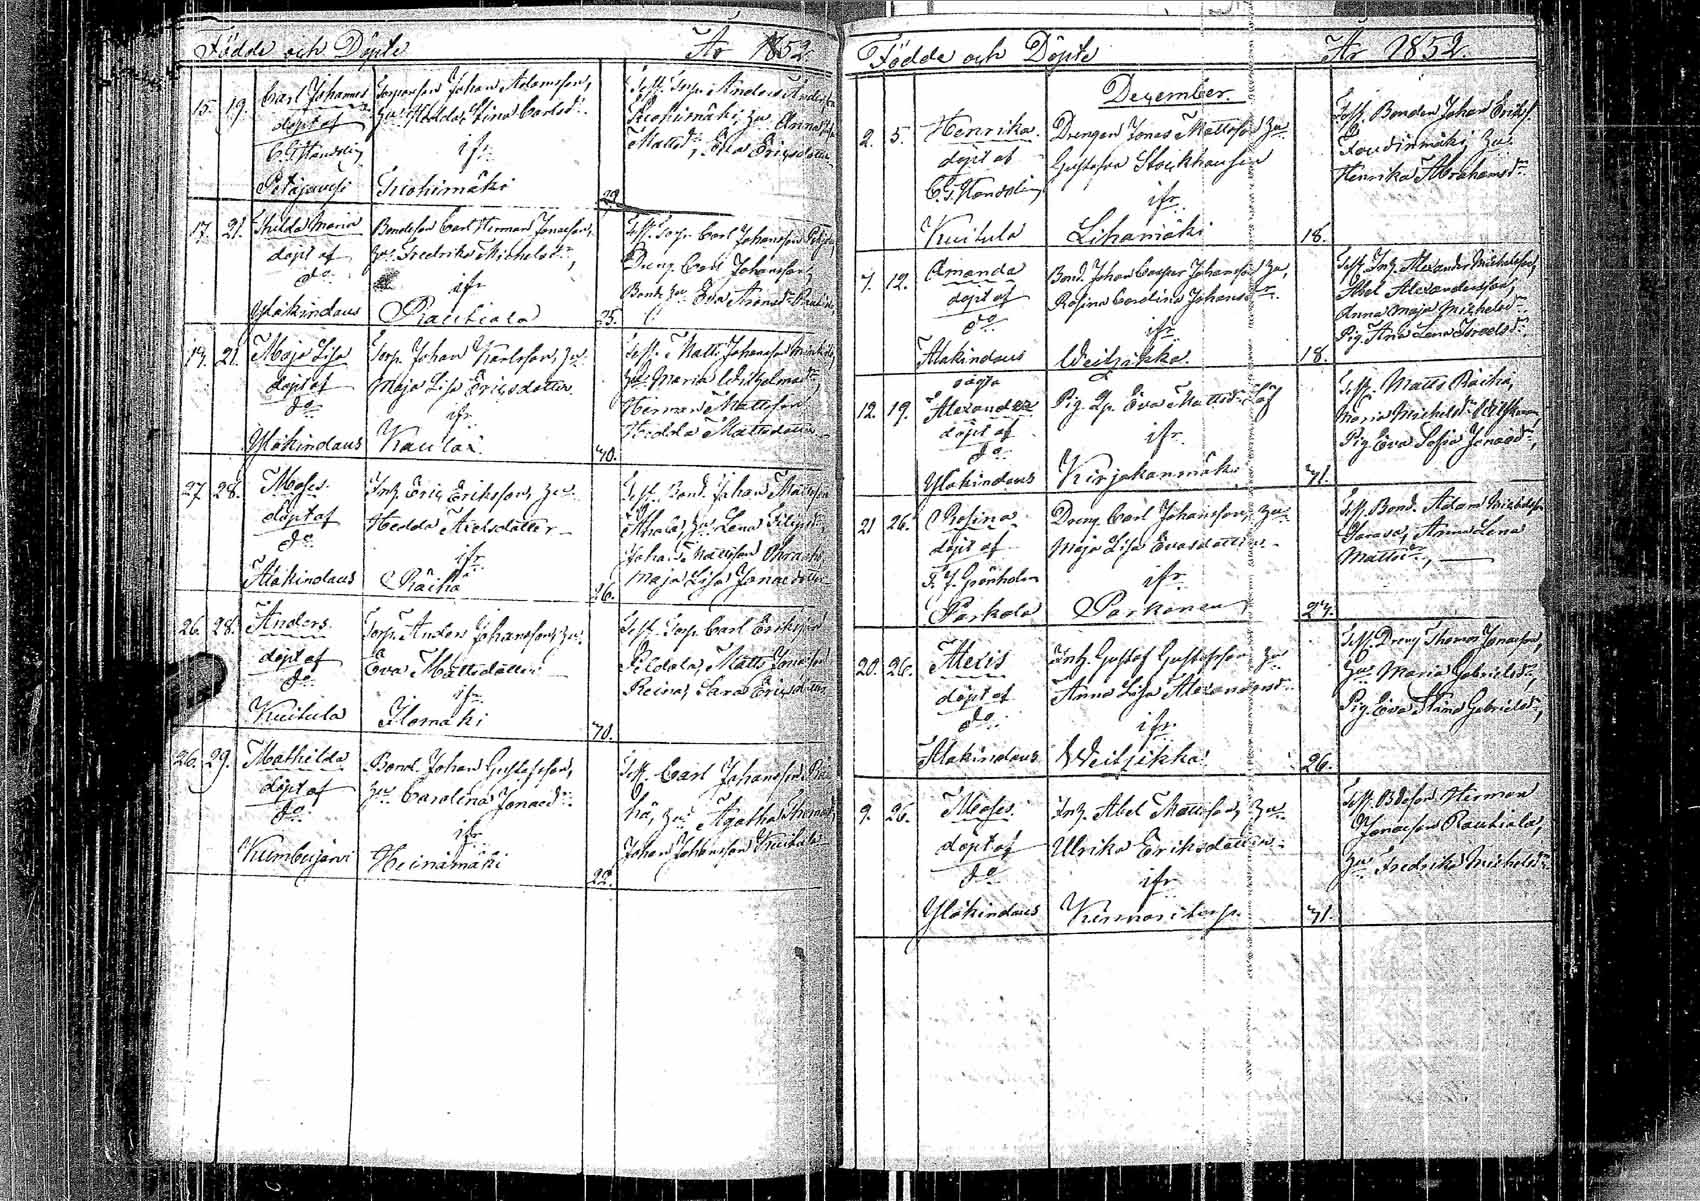 Födde och Döpte År 1852.
15. 19. Carl Johannes
döpt af
C. G. Handelin
Petäjävesi
Torparson Johan Adamsson,
hu. Hedda Stina Carlsdr
ifr
Kiohimäki
29
Test. Torp. Anders Anders
Kiohimäki, hu Anna
Mattsdr, Eva Ericsdotter
17. 21. Hilda Maria
döpt af
do
Yläkindaus
Bondeson Carl Herman Jonasson,
hu. Fredrika Michelsdr,
ifr
Rautiala
25.
Test. Torp. Carl Johansson
Dreng Carl Johansson,
Bond. hu Eva
19. 21. Maja Lisa
döpt af
do
Yläkindaus
Torp. Johan Karlsson, hu.
Maja Lisa Ericsdotter
ifr
Kaulai
70.
Test. Matts Johansson
hu. Maria Wilhelmsdr,
Herman Mattsson
Hedda Mattsdotter
27. 28. Moses
döpt af
do
Alakindaus
Inh. Eric Eriksson, hu.
Hedda Abelsdotter
ifr
Räihä
26.
Test. Bond. Johan Mattsson
Ahola, hu. Lena Filipsdr
Johan Mattsson
Maja Lisa Jonasdotter
26. 28. Anders
döpt af
do
Kuitula
Torp. Anders Johansson, hu.
Eva Mattsdotter
ifr
Ilomäki
70.
Test. Torp. Carl Ericsson
Matts Jonasson
Sara Ericsdotter
26. 29. Mathilda
döpt af
do
Kumbujärvi
Bond. Johan Gustafsson,
hu. Carolina Jonasdr
ifr
Heinämäki
22.
Test. Carl Johansson Räi
hä, hu. Agatha Thomasdr
Johan Johansson Kuitula
Födde och Döpte År 1852.
Dezember.
2. 5. Henrika
döpt af
C. G. Handelin
Kuitula
Drengen Jonas Mattsson hu
Gustafva Stockhausen
ifr
Lihamäki
18.
Test. Bonden Johan Ericss.
hu.
Henrika Abrahamsdr
7. 12. Amanda
döpt af
do
Alakindaus
Bond. Johan Casper Johansson hu,
Rosina Carolina Johansdr
ifr
Weitzikka
18.
Test. Inh. Alexander Michelsson,
Abel Alexandersson,
Anna Maja Michelsdr
Pig. Anna Lena
12. 19. oägta
Alexander
döpt af
do
Yläkindaus
Pig. Eva Mattsdr Löf
ifr
Kirjakanmäki
71.
Test. Matts Räihä,
Maria Michelsdr
Pig. Eva Sofia Jonasdr,
21 26. Rosina
döpt af
F. J. Grönholm
Parkola
Dreng. Carl Johansson, hu
Maja Lisa Evasdotter
ifr
Parkanen
24.
Test. Bond. Adam Michelsson
Anna Lena
Mattsdr,
20. 26. Alexis
döpt af
do
Alakindaus
Inh. Gustaf Gustafsson hu
Anna Lisa Alexandersdr
ifr
Weitzikka
26.
Test. Dreng Thomas Jonasson,
hu. Maria Gabrielsdr,
Pig. Eva Stina Gabrielsdr,
9. 26. Moses
döpt af
do
Yläkindaus
Inh. Abel Mattsson, hu
Ulrika Eriksdotter
ifr
71.
Test. Bdeson Herman
Jonasson Rautiala,
hu Fredrika Michelsdr